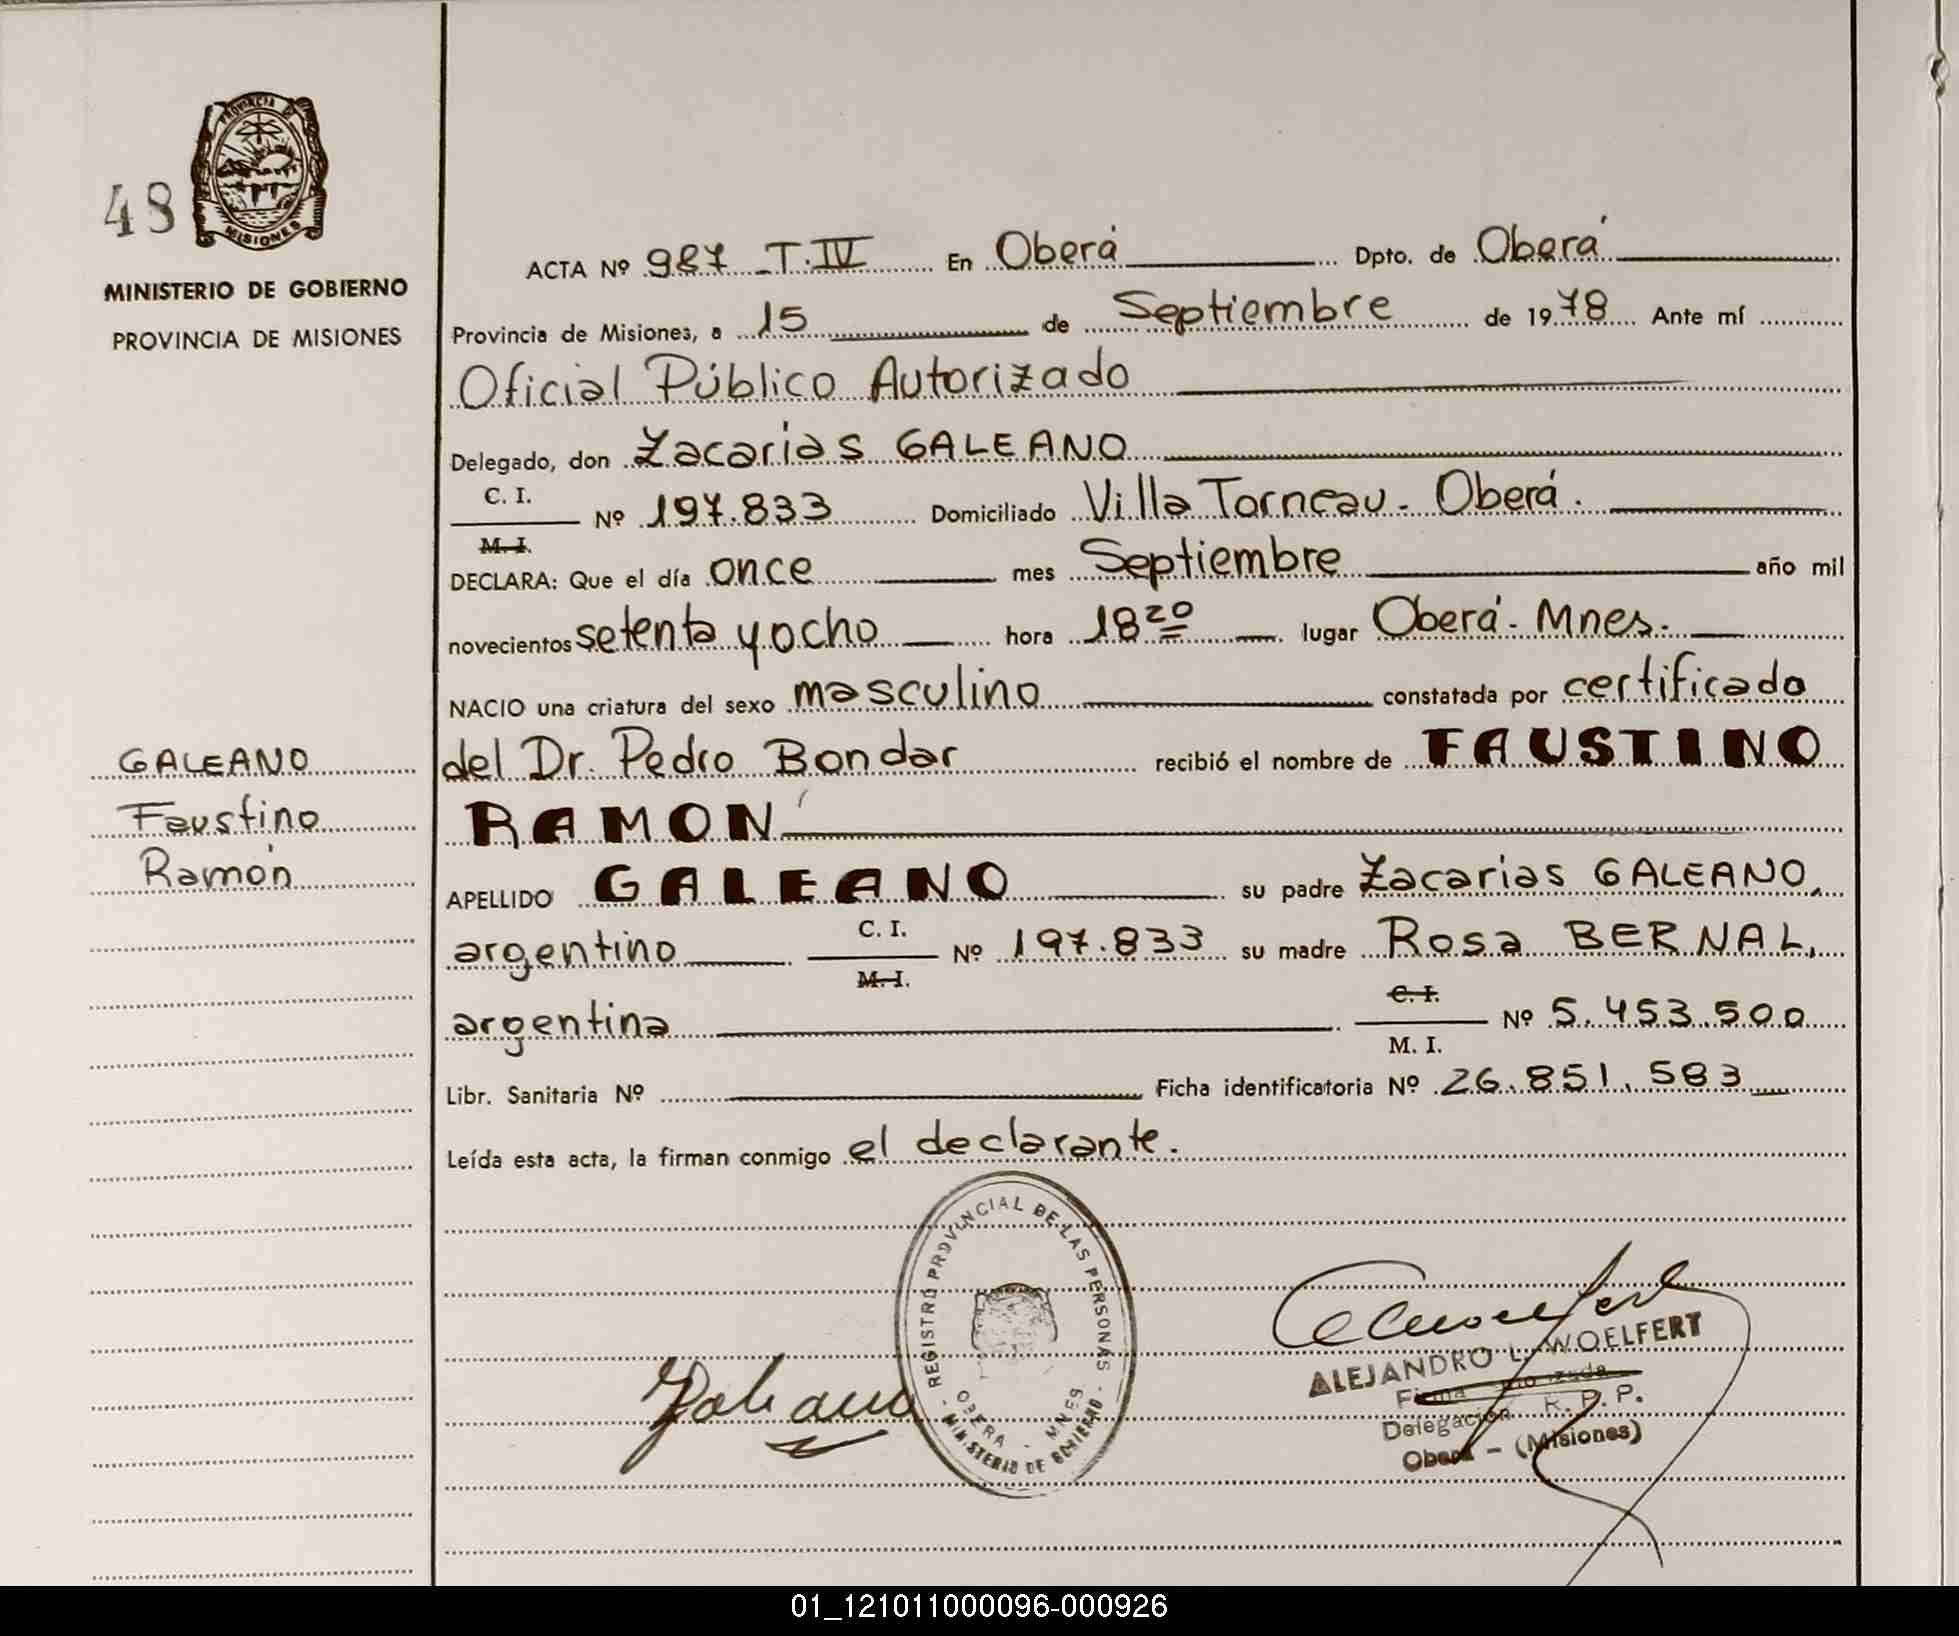 PROVINCIA DE
MISIONES
48
MINISTERIO DE GOBIERNO
PROVINCIA DE MISIONES
GALEANO
Faustino
Ramón
ACTA Nº 987 T.IV En Oberá Dpto. de Oberá
Provincia de Misiones, a 15 de Septiembre de 1978 Ante mí
Oficial Público Autorizado
Delegado, don Zacarias GALEANO
C. I.
Nº 197.833 Domiciliado Villa Torneau - Oberá.
M. I.
DECLARA: Que el día once mes Septiembre año mil
novecientos setenta y ocho hora 18 20 lugar Oberá - Mnes.
NACIO una criatura del sexo masculino constatada por certificado
del Dr. Pedro Bondar recibió el nombre de FAUSTINO
RAMÓN
APELLIDO GALEANO su padre Zacarias GALEANO,
argentino C. I. Nº 197.833 su madre Rosa BERNAL,
M. I.
C. I.
argentina Nº 5.453.500
M. I.
Libr. Sanitaria Nº Ficha identificatoria Nº 26.851.583
Leída esta acta, la firman conmigo el declarante.
REGISTRO PROVINCIAL DE LAS PERSONAS
OBERA - MNES
- MINISTERIO DE GOBIERNO -
Galeano
ALEJANDRO L. WOELFERT
Firma
Delegación R. P. P.
Oberá - (Misiones)
01_121011000096-000926